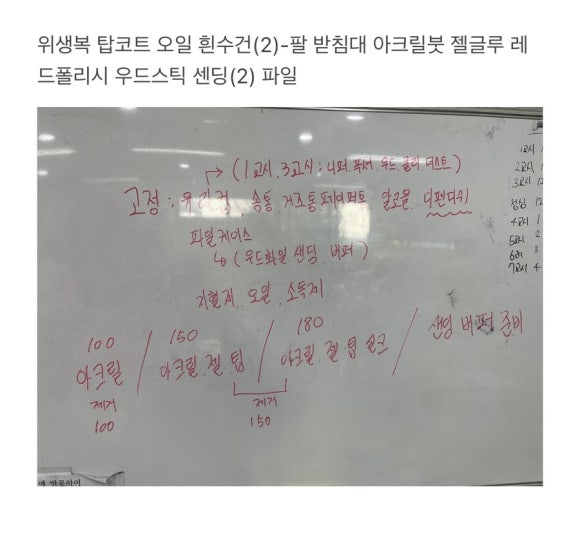 위생복 탑코트 오일 흰수건(2)-팔 받침대 아크릴붓 젤글루 레
드폴리시 우드스틱 센딩(2) 파일
(1교시, 3교시 : 니퍼. 푸셔. 우드. 클리. 더스트)
고정 : 유리컵, 솜통, 거즈통. 페이퍼통 알코올 디펜디쉬
파일케이스
(우드화일. 샌딩. 버퍼)
지혈제 오일. 소독제
100 / 150 / 180 / 샌딩 버퍼 준비
아크릴 아크릴. 젤. 팁 아크릴. 젤. 팁 실크
제거 제거
100 150
1교시 1
2교시 1
3교시 12
점심 12
4교시 1
5교시 2
6교시 3
7교시 4